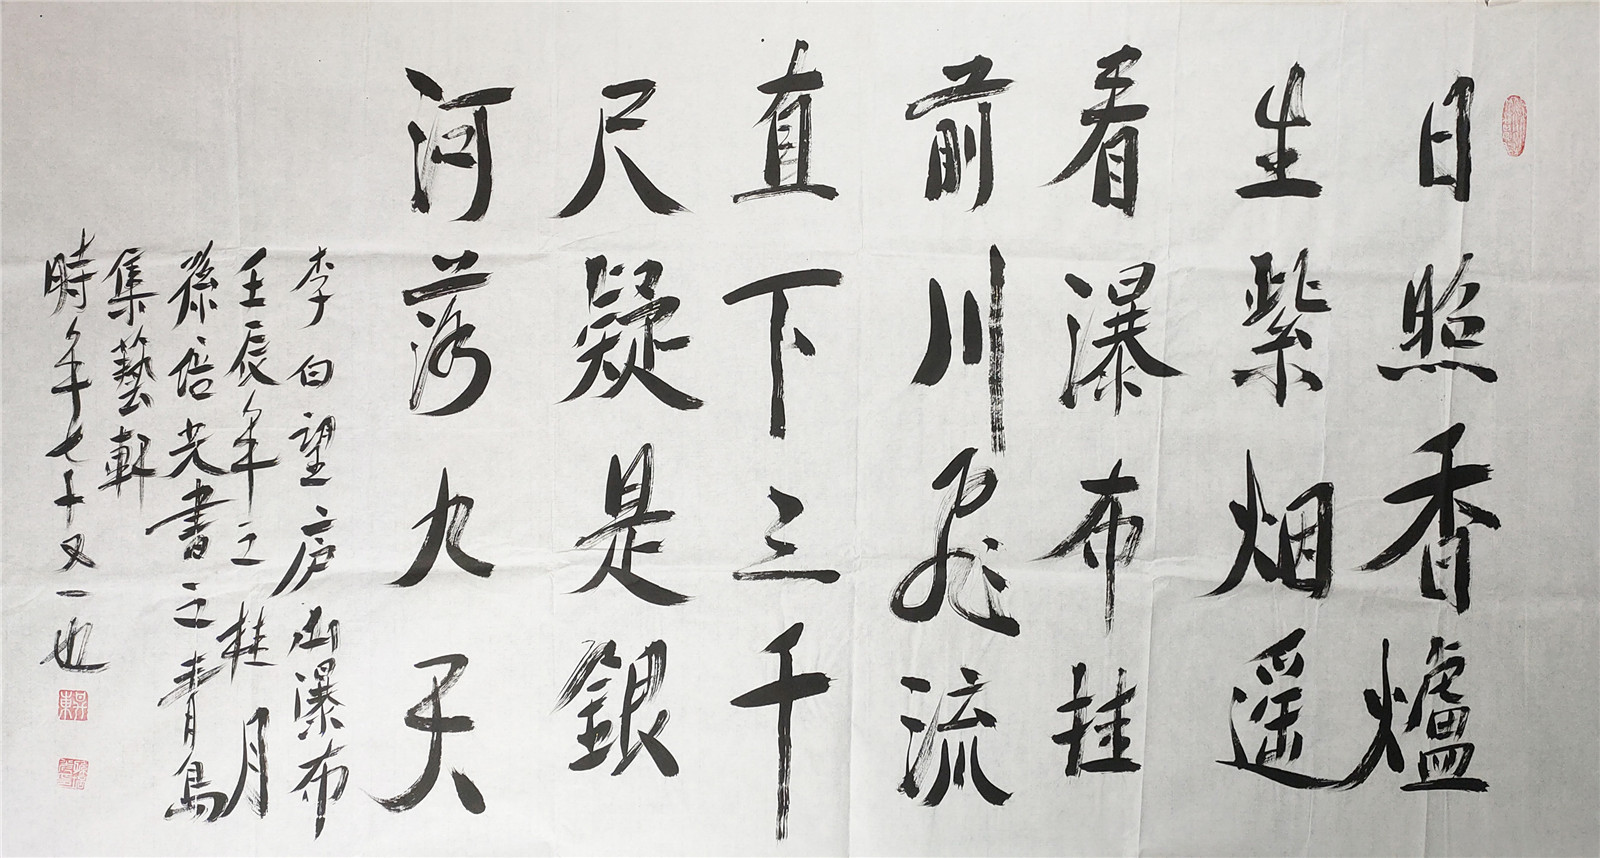 日照香爐
生紫烟遥
看瀑布挂
前川飛流
直下三千
尺疑是銀
河落九天
李白望庐山瀑布
壬辰年之桂月
孫培光書之青島
集藝軒
時年七十又一也